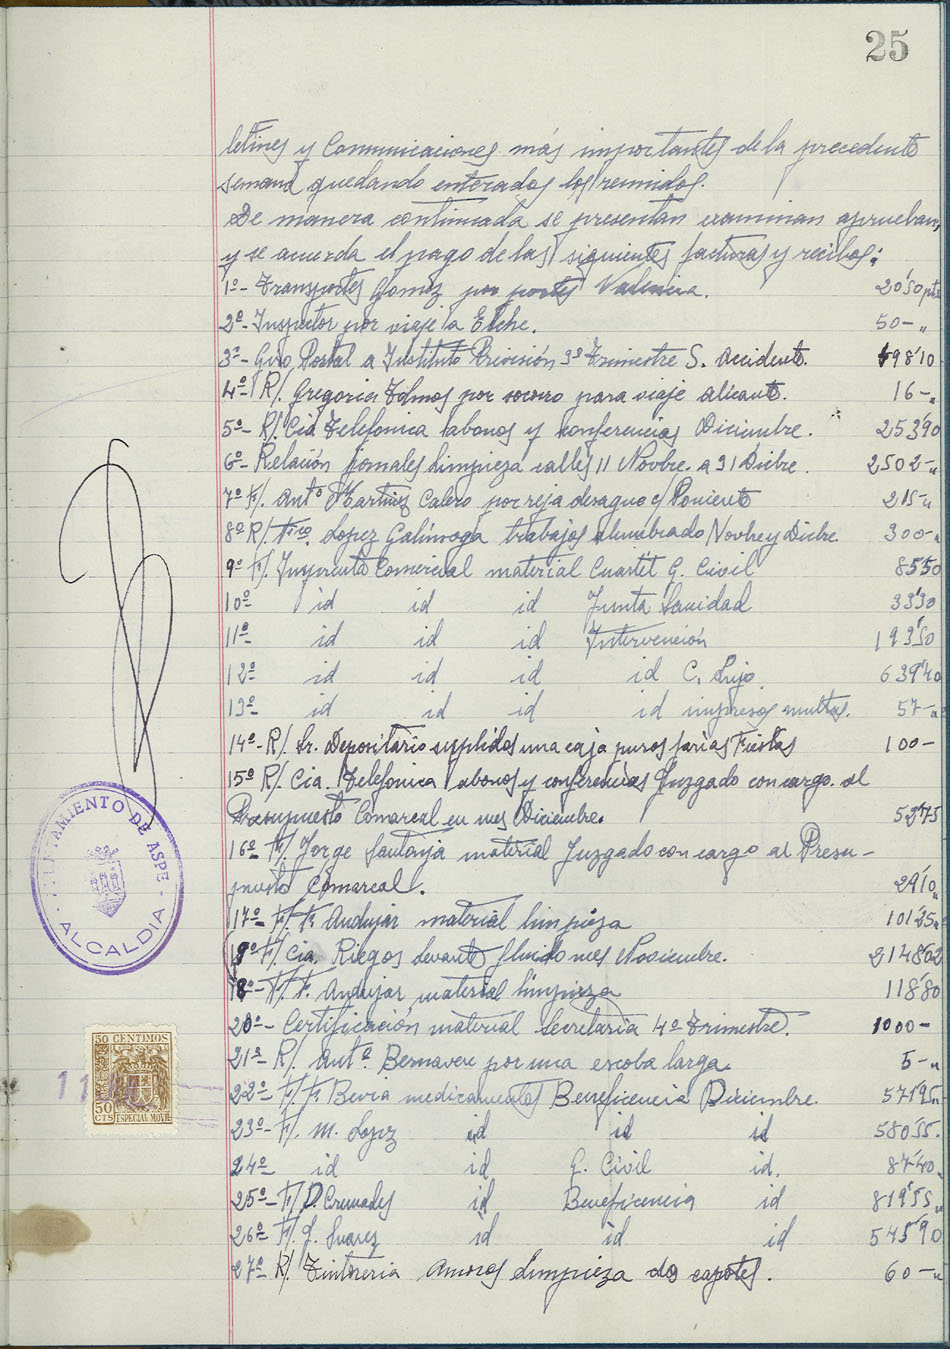 25
letines y Comunicaciones más importantes de la precedente
semana quedando enterados los reunidos.
De manera continuada se presentan examinan aprueban,
y se acuerda el pago de las siguientes facturas y recibos:
1º- Transportes Gomez por portes Valencia. 20'50 pts
2º- Inspector por viaje a Elche. 50-"
3º- Giro Postal a Instituto Previsión 3º Trimestre S. Accidente. 498'10
4º- R/. Gregoria Tolmos por socorro para viaje Alicante. 16-"
5º- R/. Cia Telefonica abonos y conferencias Diciembre. 253'90
6º- Relación jornales limpieza calles 11 Novbre. a 31 Dicbre. 2502-"
7º F/. Antº Martinez Calero por reja desague c/ Poniente 215-"
8º R/ Frco. Lopez Galinsoga trabajos alumbrado Novbre y Dicbre. 300-"
9º F/. Imprenta Comercial material Cuartel G. Civil 85'50
10º id id id Junta Sanidad 33'30
11º- id id id Intervención 193'50
12º id id id id C. Lujo. 639'40
13º- id id id id impresos multas. 57-"
14º- R/. Sr. Depositario suplidos una caja puros farias Fiestas 100-
15º R/. Cia. Telefonica abonos y conferencias Juzgado con cargo al
Presupuesto Comarcal en mes Diciembre. 52'75
16º F/. Jorge Santonja material Juzgado con cargo al Presu-
puesto Comarcal. 29'10"
17º- F/. F. Andujar material limpieza 101'25"
18º F/. Cia. Riegos Levante fluido mes Noviembre. 2148'02
19º- F/. F. Andujar material limpieza 118'80
20º- Certificación material Secretaria 4º Trimestre. 1000-
21º R/. Antº. Bernaveu por una escoba larga. 5-"
22º- F/ F. Bevia medicamentos Beneficencia Diciembre. 571'95
23º- F/. M. Lopez id id id 580'55.
24º id id G. Civil id. 87'40
25º- F/ D. Cremades id Beneficencia id 819'55
26º F/. J. Suarez id id id 545'90
27º R/. Tintoreria Amoros limpieza dos capotes. 60-"
AYUNTAMIENTO DE ASPE
ALCALDIA
50 CENTIMOS
50
CTS
ESPECIAL MOVIL